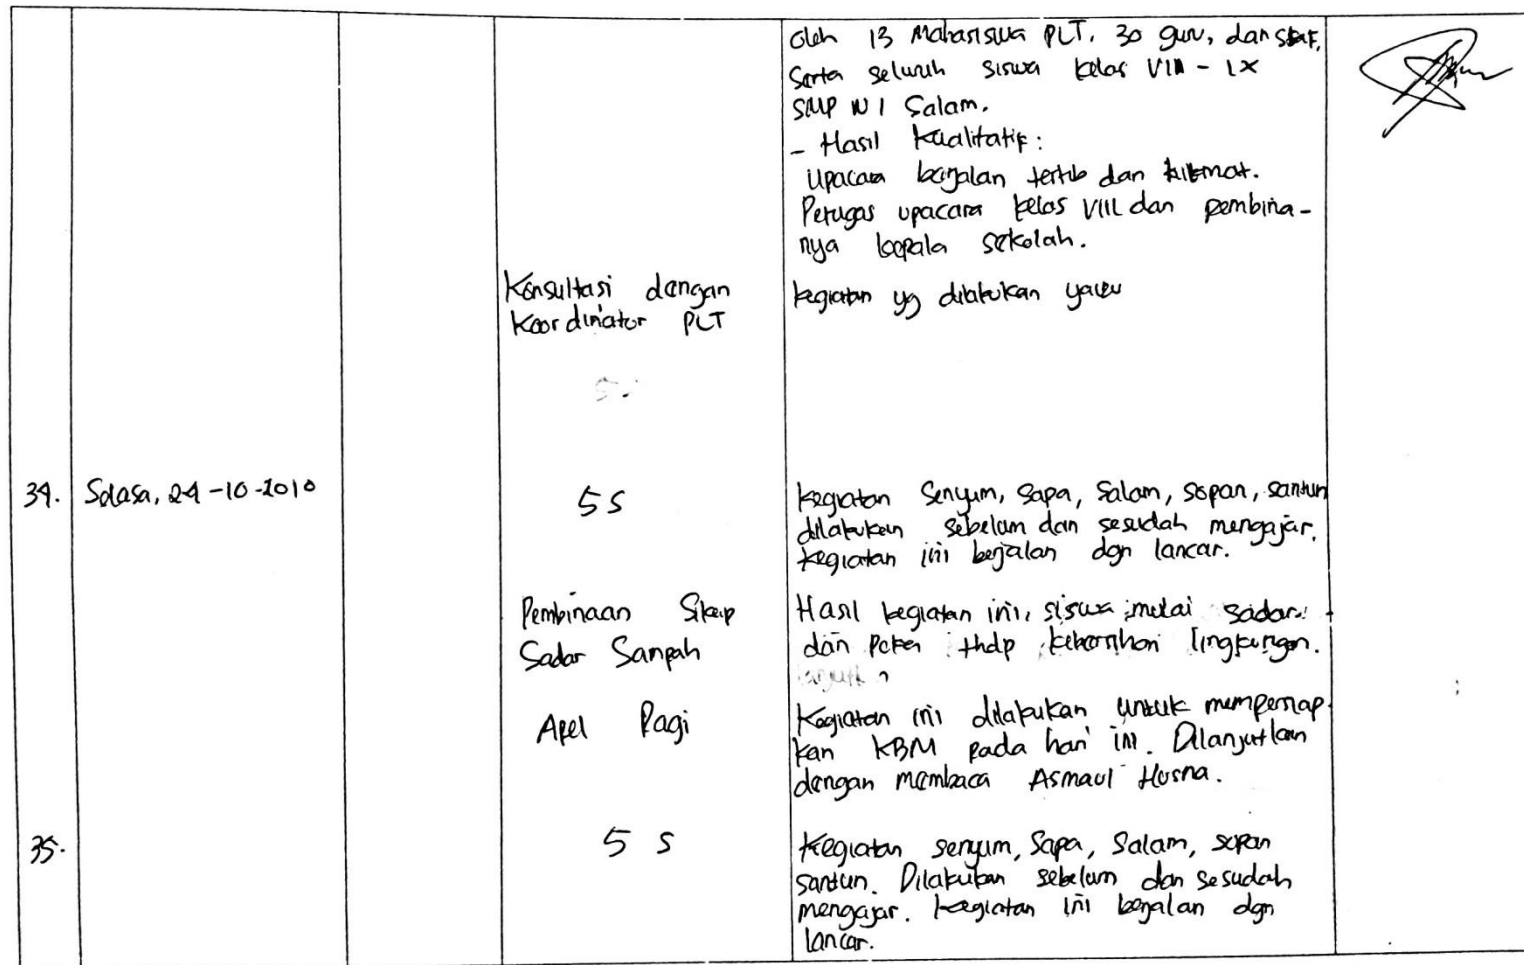 oleh 13 Mahasiswa PLT, 30 guru, dan staf,
Serta seluruh siswa kelas VII - IX
SMP N 1 Salam.
- Hasil Kualitatif:
Upacara berjalan tertib dan hikmat.
Petugas upacara kelas VIII dan pembina-
nya kepala sekolah.
Konsultasi dengan
Koordinator PLT
kegiatan yg dilakukan yaitu
34. Selasa, 24-10-2010
5 S
kegiatan Senyum, Sapa, Salam, sopan, santun
dilakukan sebelum dan sesudah mengajar.
kegiatan ini berjalan dgn lancar.
Pembinaan Sikap
Sadar Sampah
Hasil kegiatan ini, siswa mulai sadar
dan peka thdp kebersihan lingkungan.
Apel Pagi
Kegiatan ini dilakukan untuk mempersiap
kan KBM pada hari ini. Dilanjutkan
dengan membaca Asmaul Husna.
35.
5 S
Kegiatan senyum, Sapa, Salam, sopan
santun. Dilakukan sebelum dan sesudah
mengajar. kegiatan ini berjalan dgn
lancar.